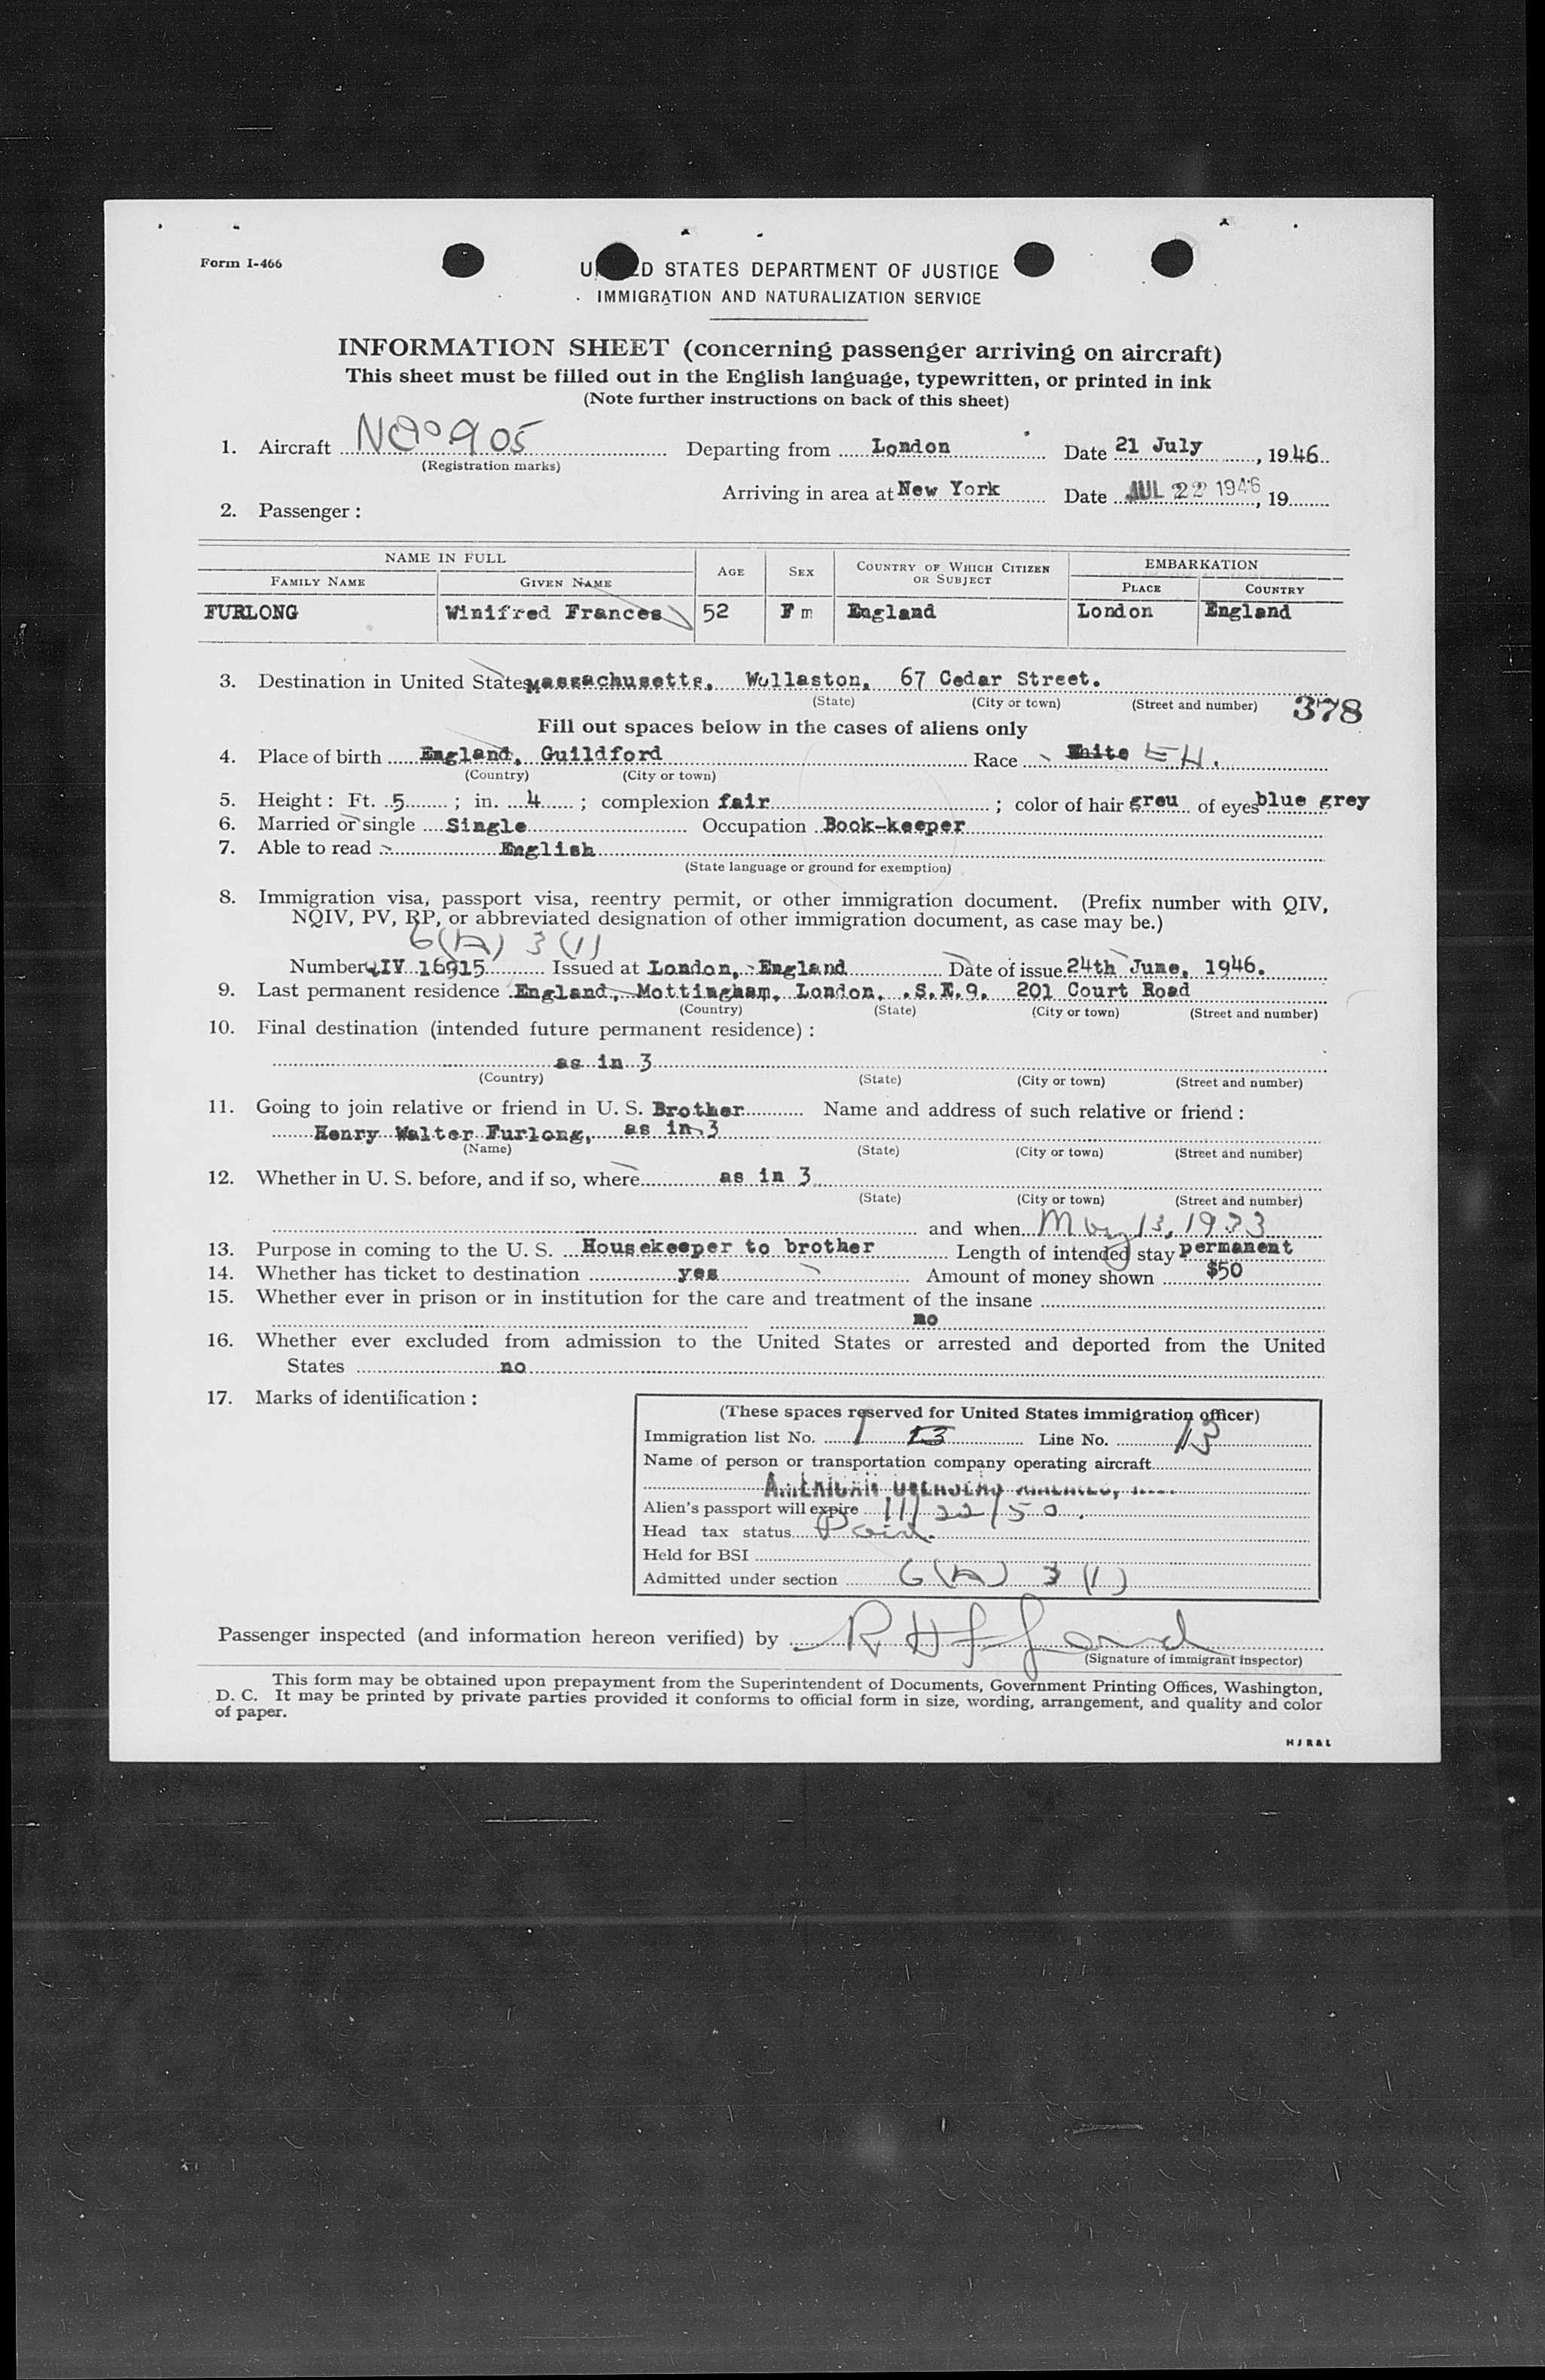 Form I-466
U D STATES DEPARTMENT OF JUSTICE
IMMIGRATION AND NATURALIZATION SERVICE
INFORMATION SHEET (concerning passenger arriving on aircraft)
This sheet must be filled out in the English language, typewritten, or printed in ink
(Note further instructions on back of this sheet)
1. Aircraft 905 Departing from London Date 21 July, 1946
(Registration marks)
Arriving in area at New York Date JUL 22 1946, 19
2. Passenger :
NAME IN FULL AGE SEX COUNTRY OF WHICH CITIZEN OR SUBJECT EMBARKATION
FAMILY NAME GIVEN NAME PLACE COUNTRY
FURLONG Winifred Frances 52 Fm England London England
3. Destination in United States Massachusetts, Wollaston, 67 Cedar Street.
(State) (City or town) (Street and number) 378
Fill out spaces below in the cases of aliens only
4. Place of birth England, Guildford Race White E H.
(Country) (City or town)
5. Height : Ft. 5 ; in. 4 ; complexion fair ; color of hair greu of eyes blue grey
6. Married or single Single Occupation Book-keeper
7. Able to read English
(State language or ground for exemption)
8. Immigration visa, passport visa, reentry permit, or other immigration document. (Prefix number with QIV,
NQIV, PV, RP, or abbreviated designation of other immigration document, as case may be.)
6(A) 3(1)
Number QIV 16915 Issued at London, England Date of issue 24th June, 1946.
9. Last permanent residence England, Mottingham, London, .S.E.9. 201 Court Road
(Country) (State) (City or town) (Street and number)
10. Final destination (intended future permanent residence) :
as in 3
(Country) (State) (City or town) (Street and number)
11. Going to join relative or friend in U. S. Brother Name and address of such relative or friend :
Henry Walter Furlong, as in 3
(Name) (State) (City or town) (Street and number)
12. Whether in U. S. before, and if so, where as in 3
(State) (City or town) (Street and number)
and when May 13, 1933
13. Purpose in coming to the U. S. Housekeeper to brother Length of intended stay permanent
14. Whether has ticket to destination yes Amount of money shown $50
15. Whether ever in prison or in institution for the care and treatment of the insane
no
16. Whether ever excluded from admission to the United States or arrested and deported from the United
States no
17. Marks of identification :
(These spaces reserved for United States immigration officer)
Immigration list No. 1 13 Line No. 13
Name of person or transportation company operating aircraft
AMERICAN OVERSEAS AIRLINES,
Alien's passport will expire 11/22/50.
Head tax status Paid.
Held for BSI
Admitted under section 6(A) 3(1)
Passenger inspected (and information hereon verified) by
(Signature of immigrant inspector)
This form may be obtained upon prepayment from the Superintendent of Documents, Government Printing Offices, Washington,
D. C. It may be printed by private parties provided it conforms to official form in size, wording, arrangement, and quality and color
of paper.
HJR&L